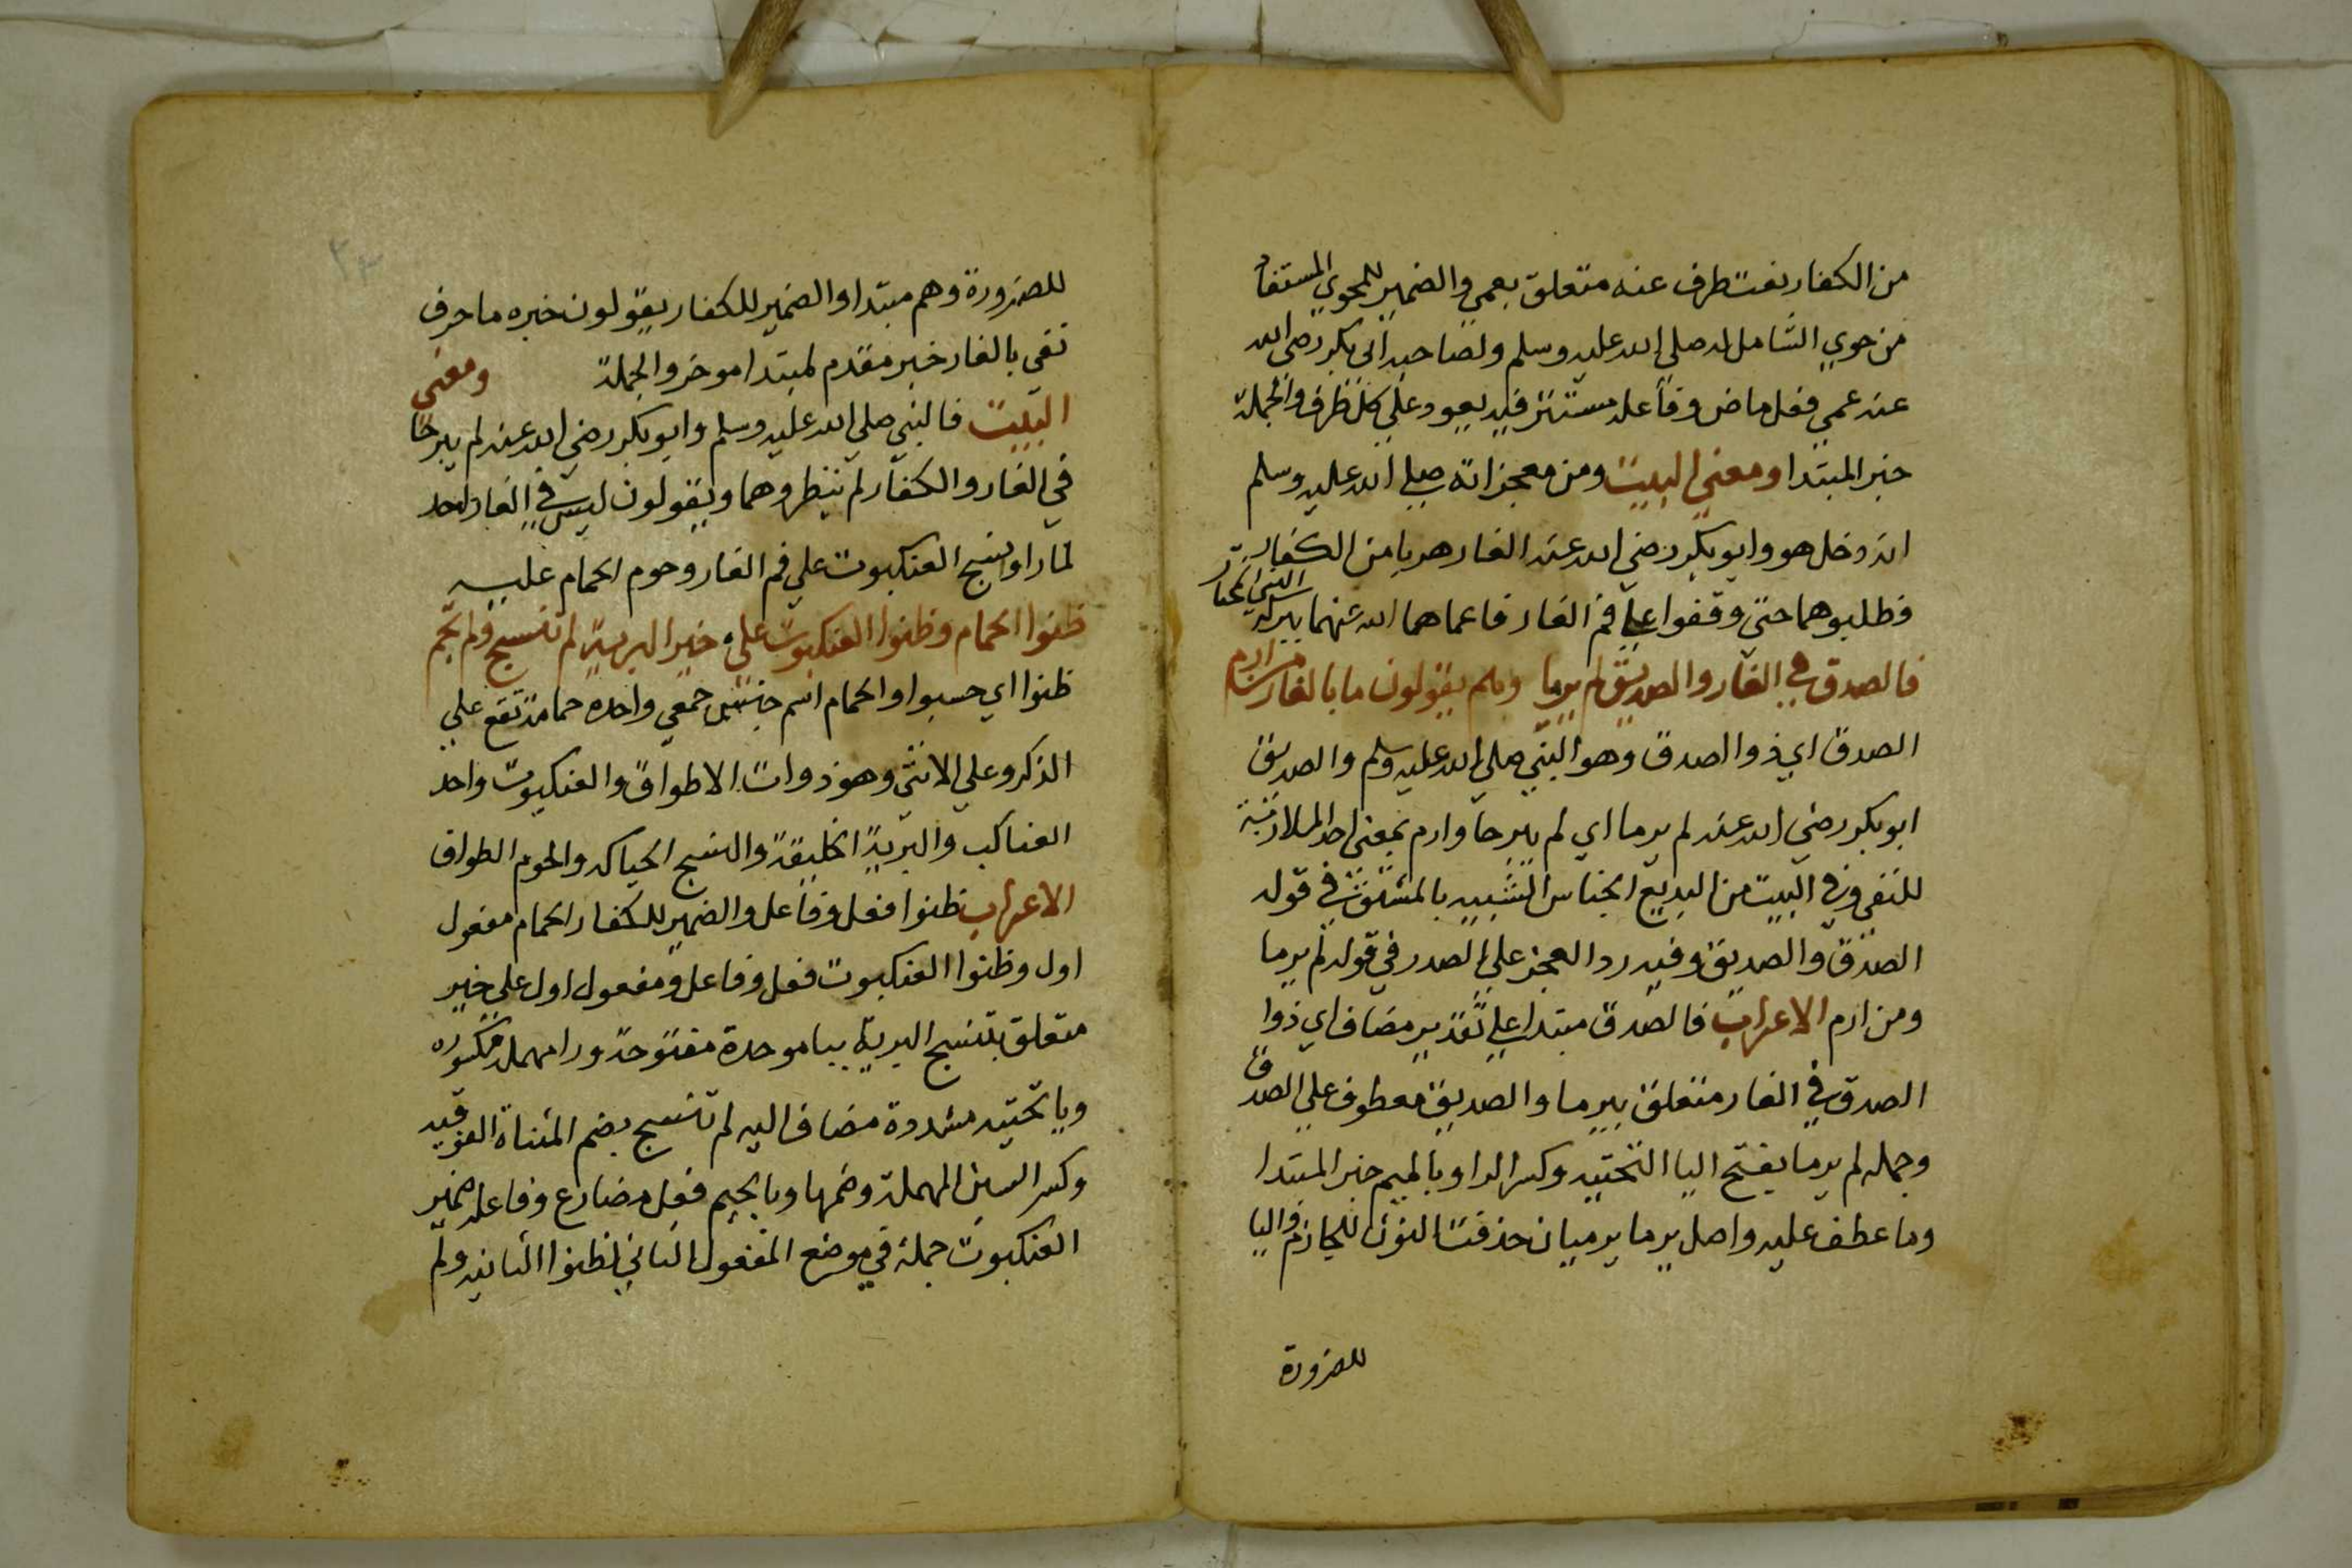 من الكفار نعت طرف عنه متعلق بعمي والضمير للمحوي المستفاد
من حوي الشامل له صلى الله عليه وسلم ولصاحبه ابى بكر رضي الله
عنه عمي فعل ماض وفاعله مستتر فيه يعود علي كل طرف والجملة
خبر المبتدا ومعني البيت ومن معجزاته صلى الله عليه وسلم
انه دخل هو وابو بكر رضي الله عنه الغار هربا من الكفار
فطلبوهما حتى وقفوا علي فم الغار فاعماهما الله عنهما ببركة النبي المختار
فالصدق في الغار والصديق لم يرما وهم يقولون ما بالغار من ارم
الصدق اي ذوا الصدق وهو النبي صلي الله عليه وسلم والصديق
ابو بكر رضي الله عنه لم يرما اي لم يبرحا وارم بمعني احد الملازمة
للنفي وفي البيت من البديع الجناس الشبيه بالمشتق في قوله
الصدق والصديق وفيه رد العجز علي الصدر في قوله لم يرما
ومن ارم الاعراب فالصدق مبتدا علي تقدير مضاف اي ذوا
الصدق في الغار متعلق بيرما والصديق معطوف علي الصدق
وجمله لم يرما بفتح اليا التحتيه وكسر الرا وبالميم خبر المبتدا
وما عطف عليه واصل يرما يرميان حذفت النون للجازم واليا
للضرورة
للضرورة وهم مبتدا والضمير للكفار يقولون خبره ما حرف
نفي بالغار خبر مقدم لمبتدا موخر والجملة ومعني
البيت فالنبي صلي الله عليه وسلم وابو بكر رضي الله عنه لم يبرحا
في الغار والكفار لم ينظروهما ويقولون ليس في الغار احد
لما راوا نسج العنكبوت علي فم الغار وحوم الحمام عليه
ظنوا الحمام وظنوا العنكبوت علي خير البرية لم تنسج ولم تحم
ظنوا اي حسبوا والحمام اسم جنس جمعي واحده حمامة تقع علي
الذكر وعلي الانثي وهو ذوات الاطواق والعنكبوت واحد
العناكب والبرية الخليقة والنسج الحياكه والحوم الطواف
الاعراب ظنوا فعل وفاعل والضمير للكفار الحمام مفعول
اول وظنوا العنكبوت فعل وفاعل ومفعول اول علي خير
متعلق بتنسج البرية ببا موحدة مفتوحة ورا مهملة مكسوره
ويا تحتيه مشددة مضاف اليه لم تنسج بضم المثناة الفوقيه
وكسر السين المهملة وضمها وبالجيم فعل مضارع وفاعله ضمير
العنكبوت جملة في موضع المفعول الثاني لظنوا الثانيه ولم